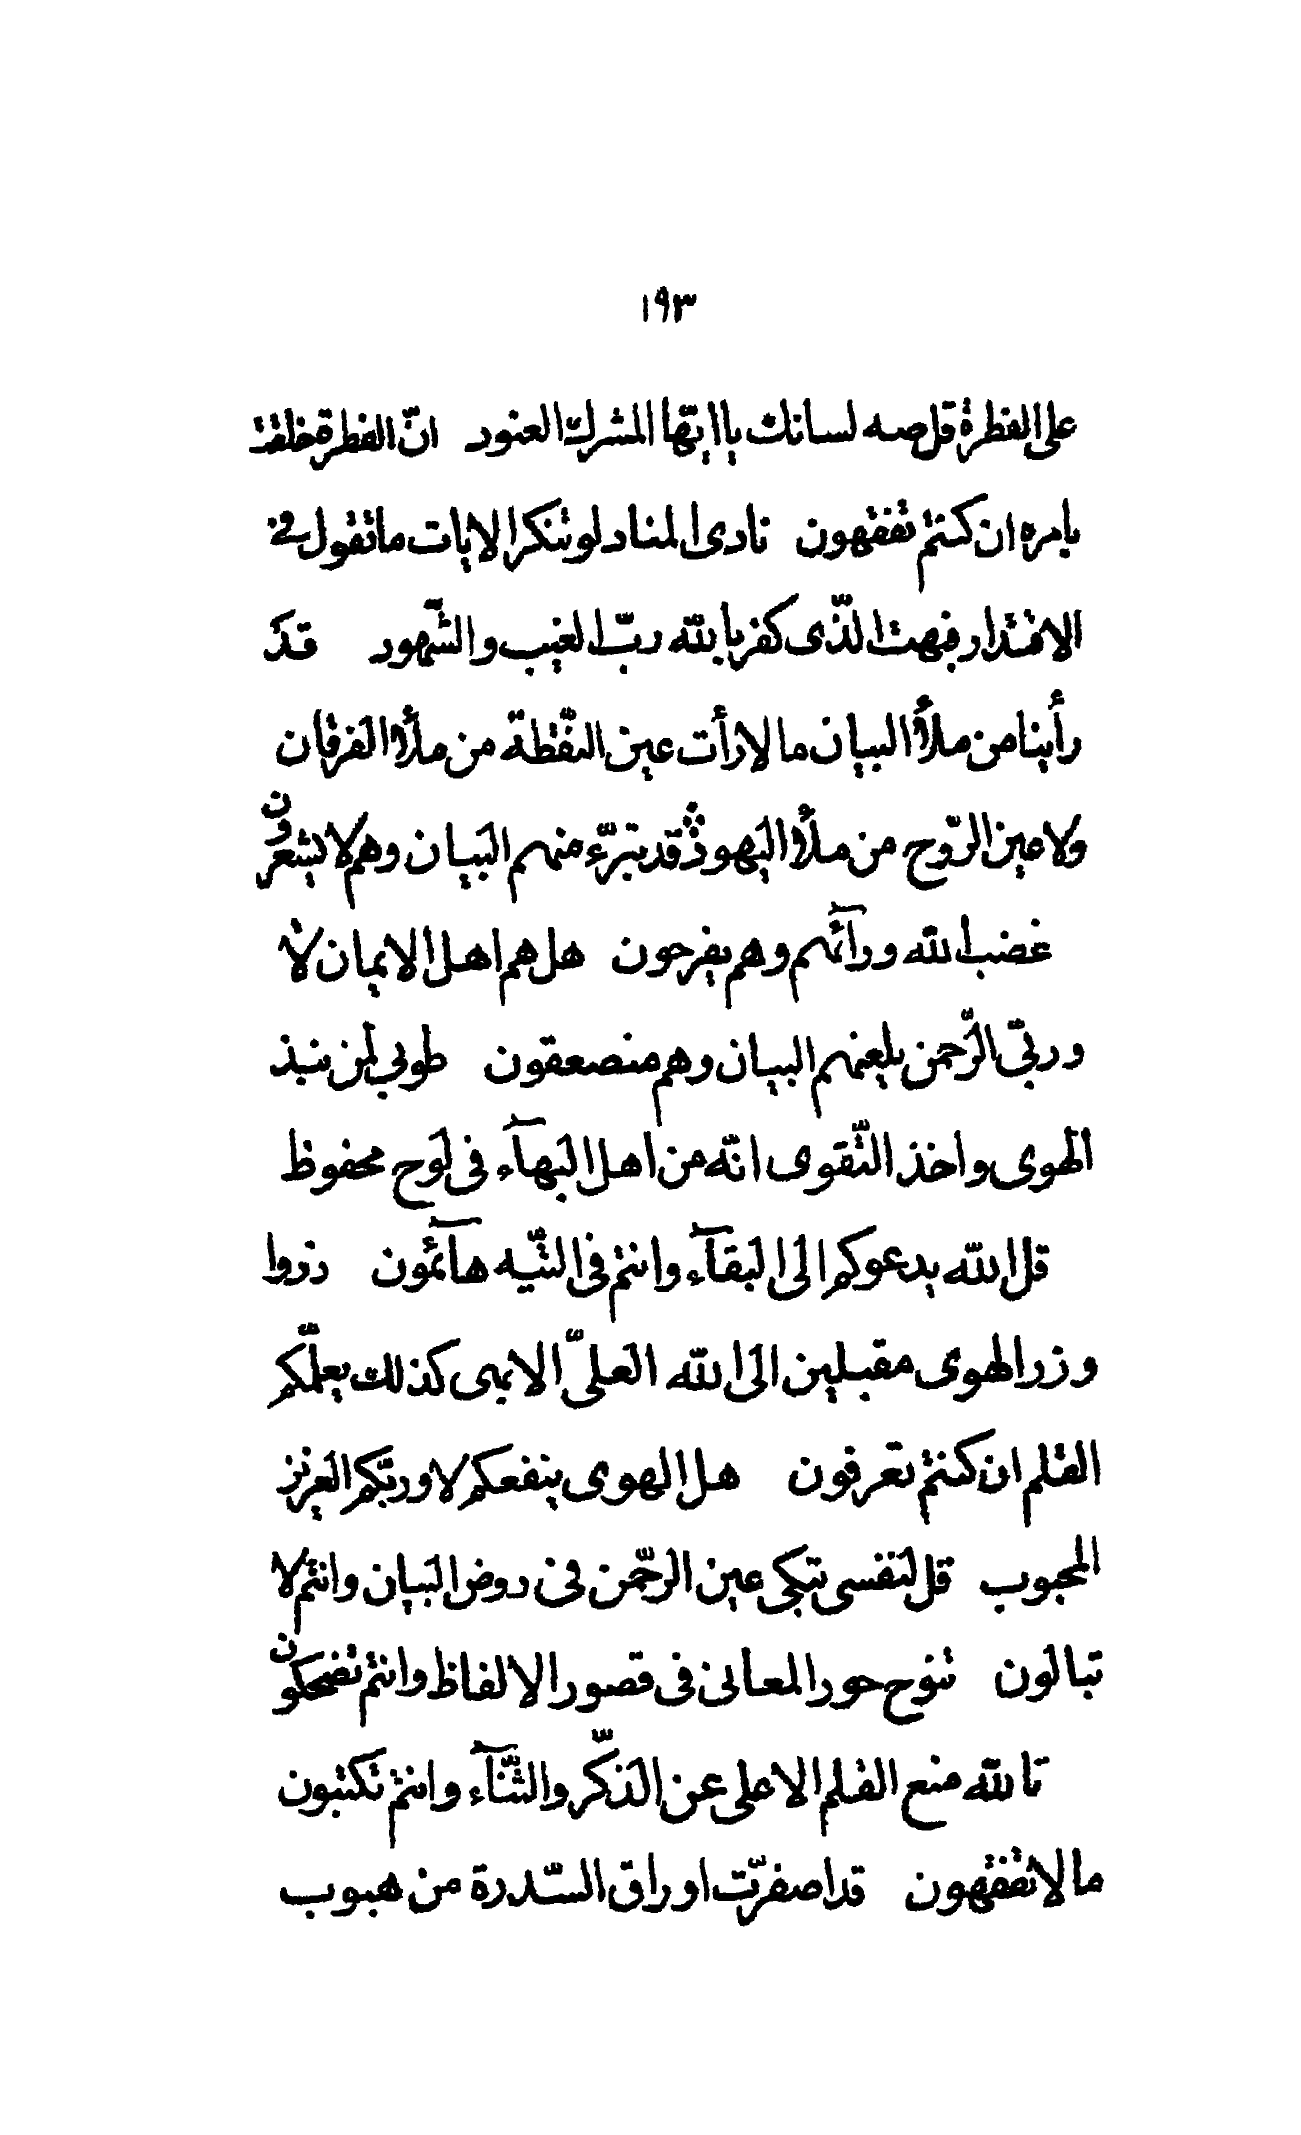 ١٩٣
على الفطرة قل صه لسانك يا ايّها المشرك العنود انّ الفطرة خلقت
بامره ان كنتم تفقهون نادى المناد لو تنكر الايات ما تقول فى
الاقتدار فبهت الّذى كفر بالله ربّ الغيب والشّهود قد
رأينا من ملأ البيان ما لا رأت عين النّقطة من ملأ الفرقان
ولا عين الرّوح من ملأ اليهود قد تبرّء منهم البيان وهم لا يشعرون
غضب الله ورآئهم وهم يفرحون هل هم اهل الايمان لا
وربّى الرّحمن يلعنهم البيان وهم منصعقون طوبى لمن نبذ
الهوى واخذ التّقوى انّه من اهل البهآء فى لوح محفوظ
قل الله يدعوكم الى البقآء وانتم فى التّيه هآئمون ذروا
وزر الهوى مقبلين الى الله العلىّ الابهى كذلك يعلّمكم
القلم ان كنتم تعرفون هل الهوى ينفعكم لا وربّكم العزيز
المحبوب قل لنفسى تبكى عين الرّحمن فى روض البيان وانتم لا
تبالون تنوح حور المعانى فى قصور الالفاظ وانتم تضحكون
تالله منع القلم الاعلى عن الذّكر والثّنآء وانتم تكتبون
ما لا تفقهون قد اصفرّت اوراق السّدرة من هبوب